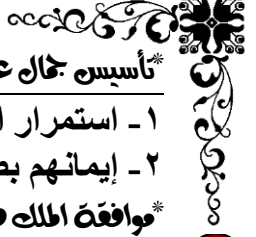 *تأسيس جمال
١ـ استمرار
٢ـ إيمانهم
*موافقة الملك